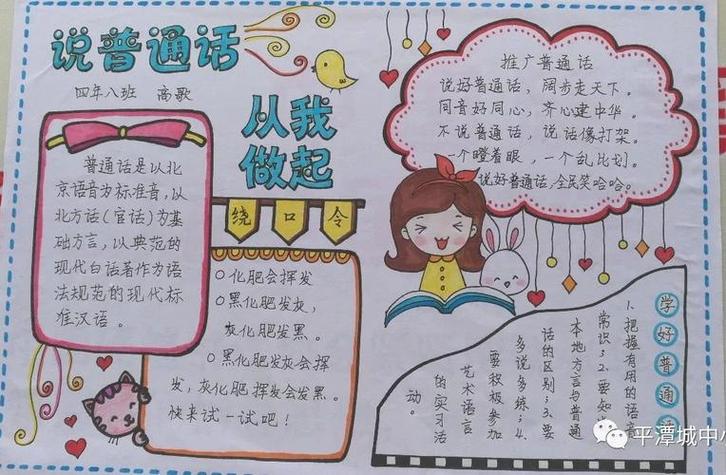 说普通话
四年八班 高歌
从我
做起
普通话是以北
京语音为标准音,以
北方话(官话)为基
础方言,以典范的
现代白话著作为语
法规范的现代标
准汉语。
绕口令
化肥会挥发
黑化肥发灰,
灰化肥发黑。
黑化肥发灰会挥
发,灰化肥挥发会发黑。
快来试一试吧!
推广普通话
说好普通话,阔步走天下。
同音好同心,齐心建中华。
不说普通话,说话像打架。
一个瞪着眼,一个乱比划。
说好普通话,全民笑哈哈。
学好普通
1.把握有用的语音
常识;2.要知
本地方言与普通
话的区别;3.要
多说多练;4.
要积极参加
艺术语言
的实习活
动。
平潭城中小